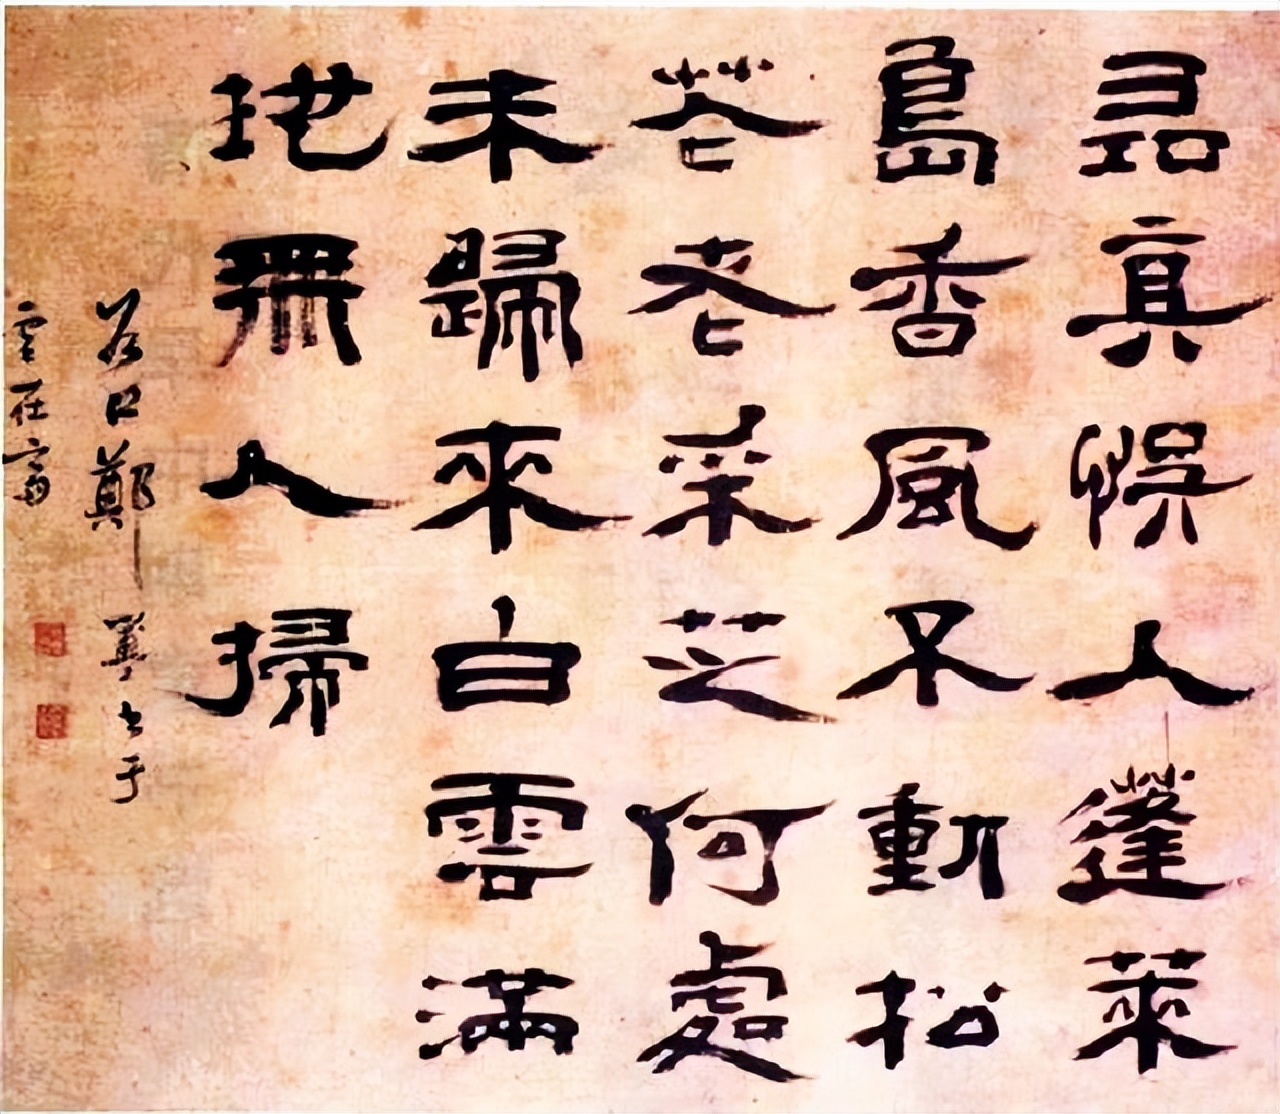 尋真悮入蓬萊
島香風不動松
花老采芝何處
未歸來白雲滿
地無人掃
谷口鄭簠書于
在齋